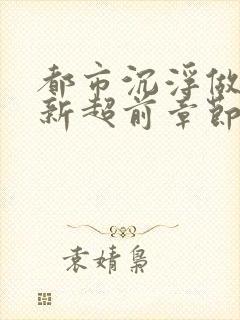 都市沉浮做
新超前章節
袁婧梟